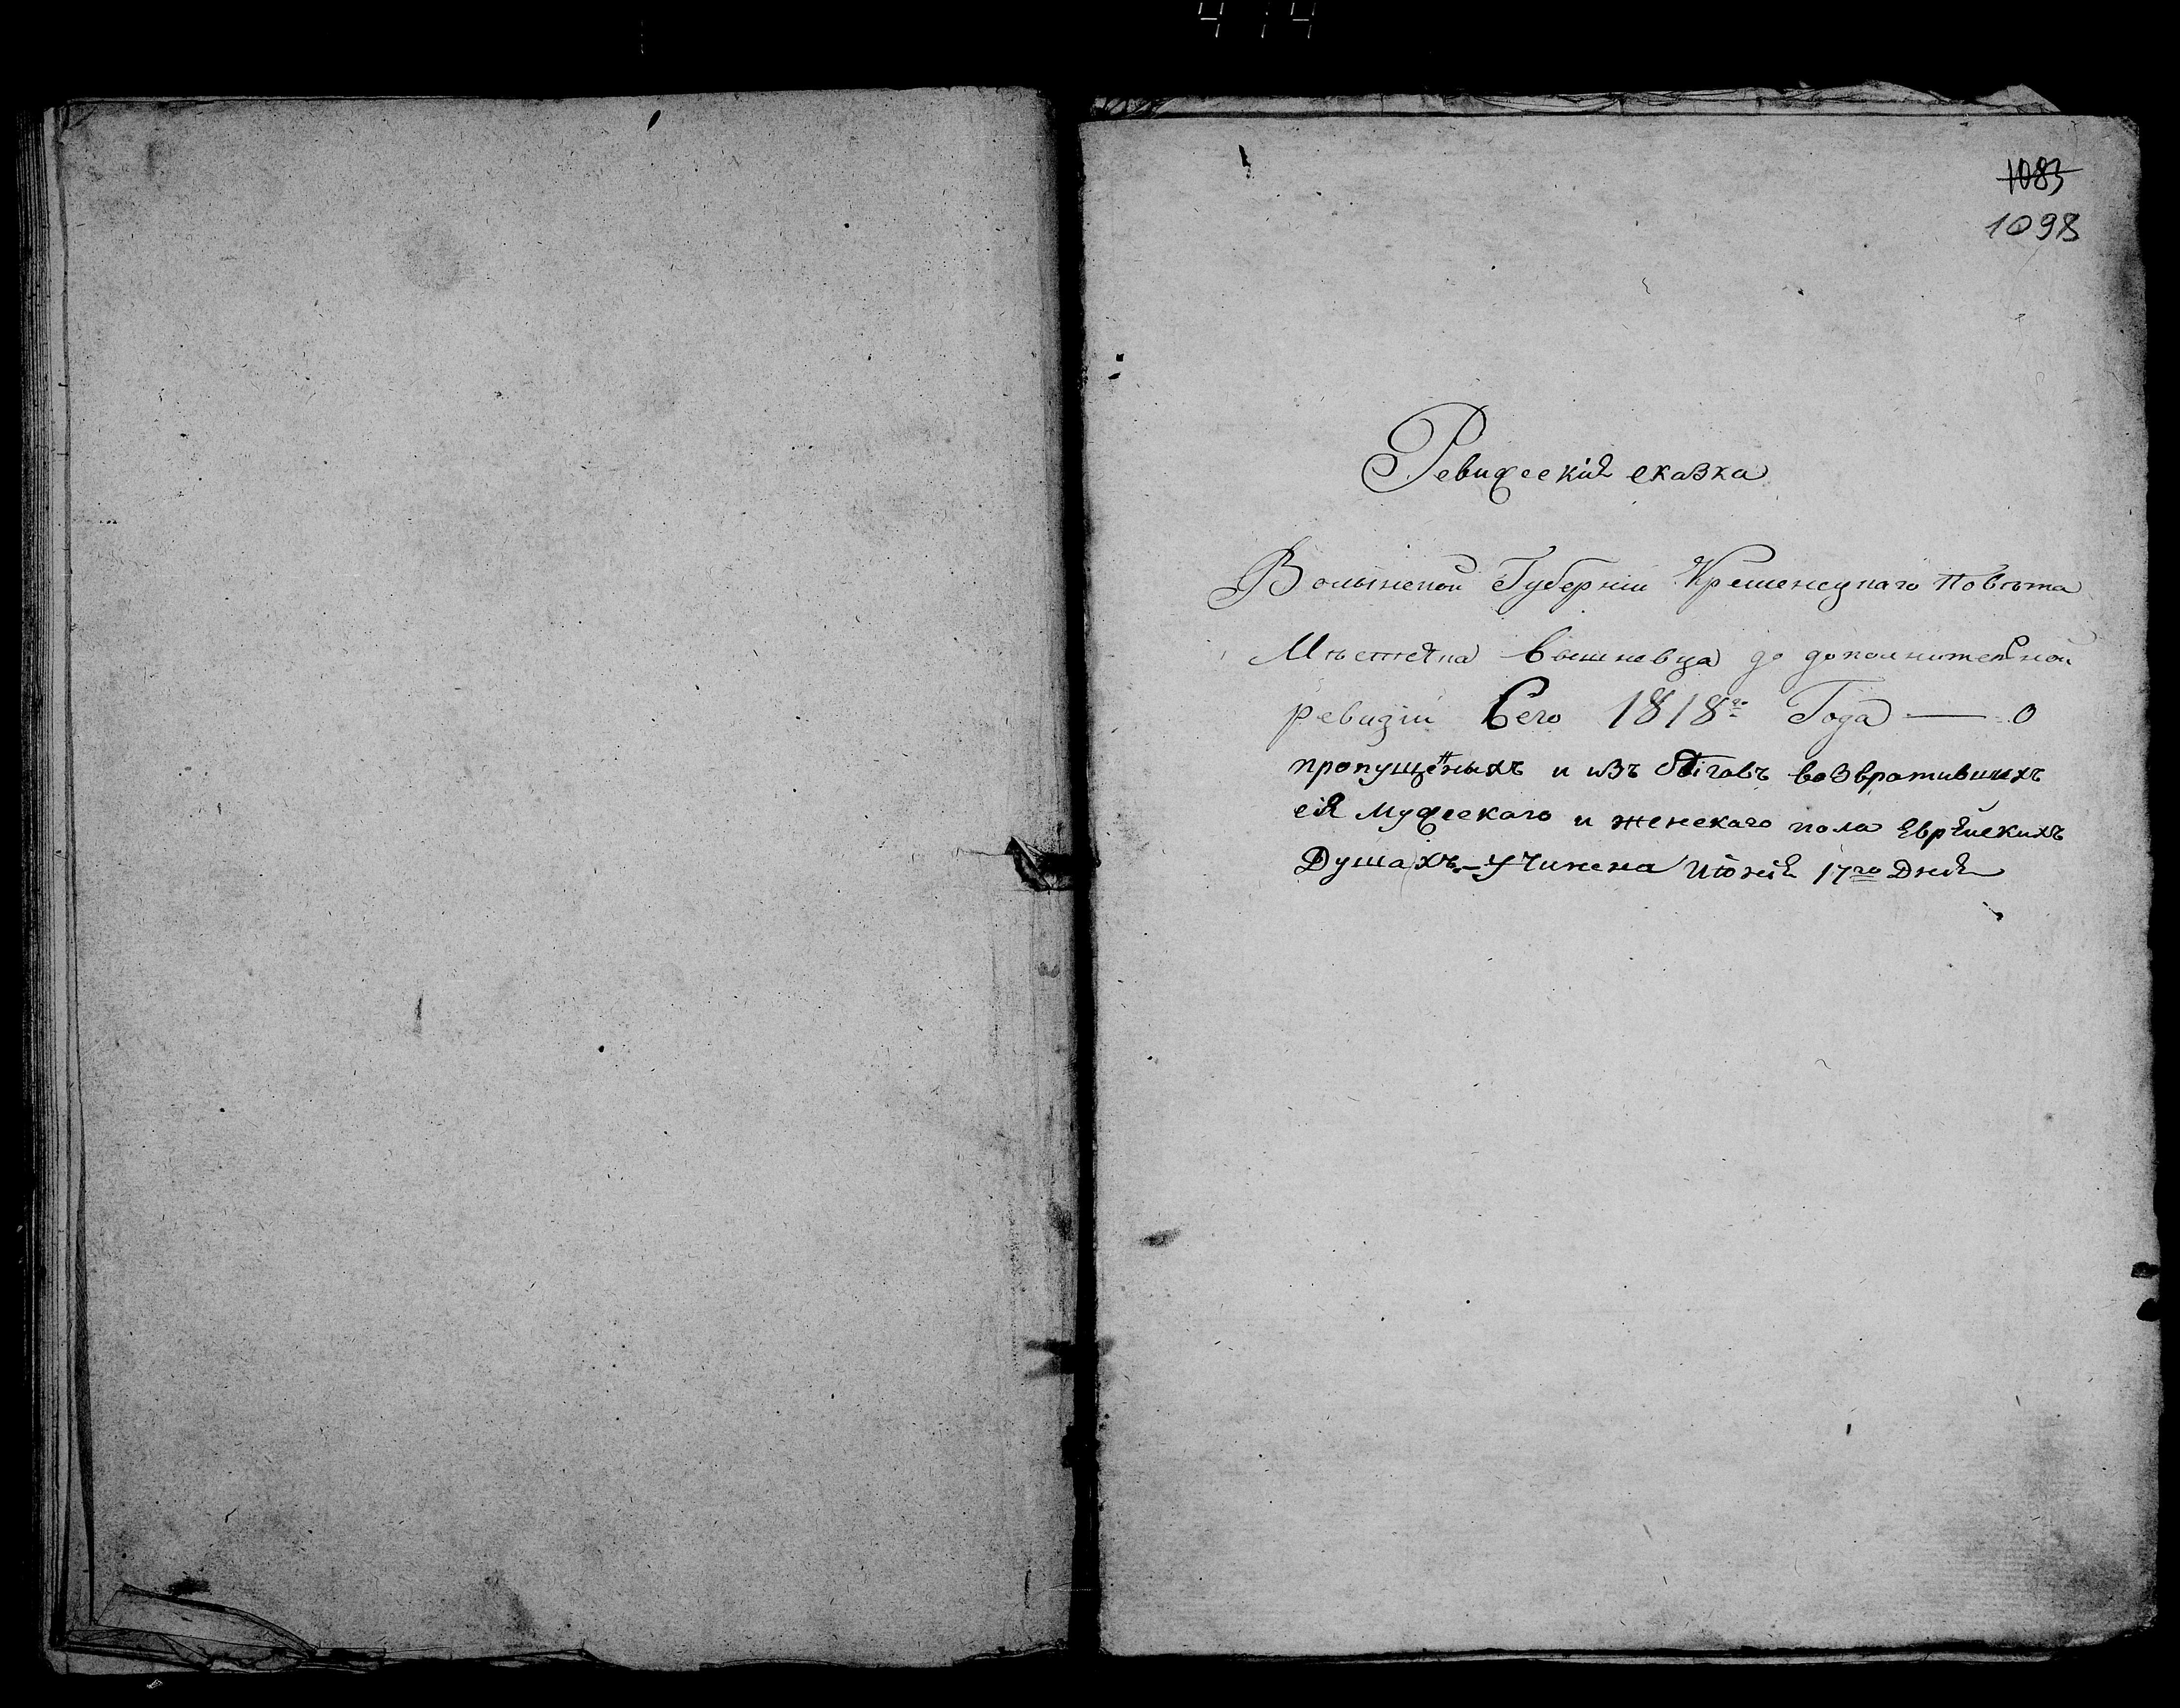 4 : 4
1083
1098
Ревижскія сказка
Волынской Губерніи Кременецкаго Повѣта
Мѣстечка Вышневца до дополнительной
ревизіи Сего 1818го Года — о
пропущенныхъ и изъ бѣговъ возвратившихъ
сія мужескаго и женскаго пола Еврейскихъ
Душахъ — Учинена Июнія 17го Дня